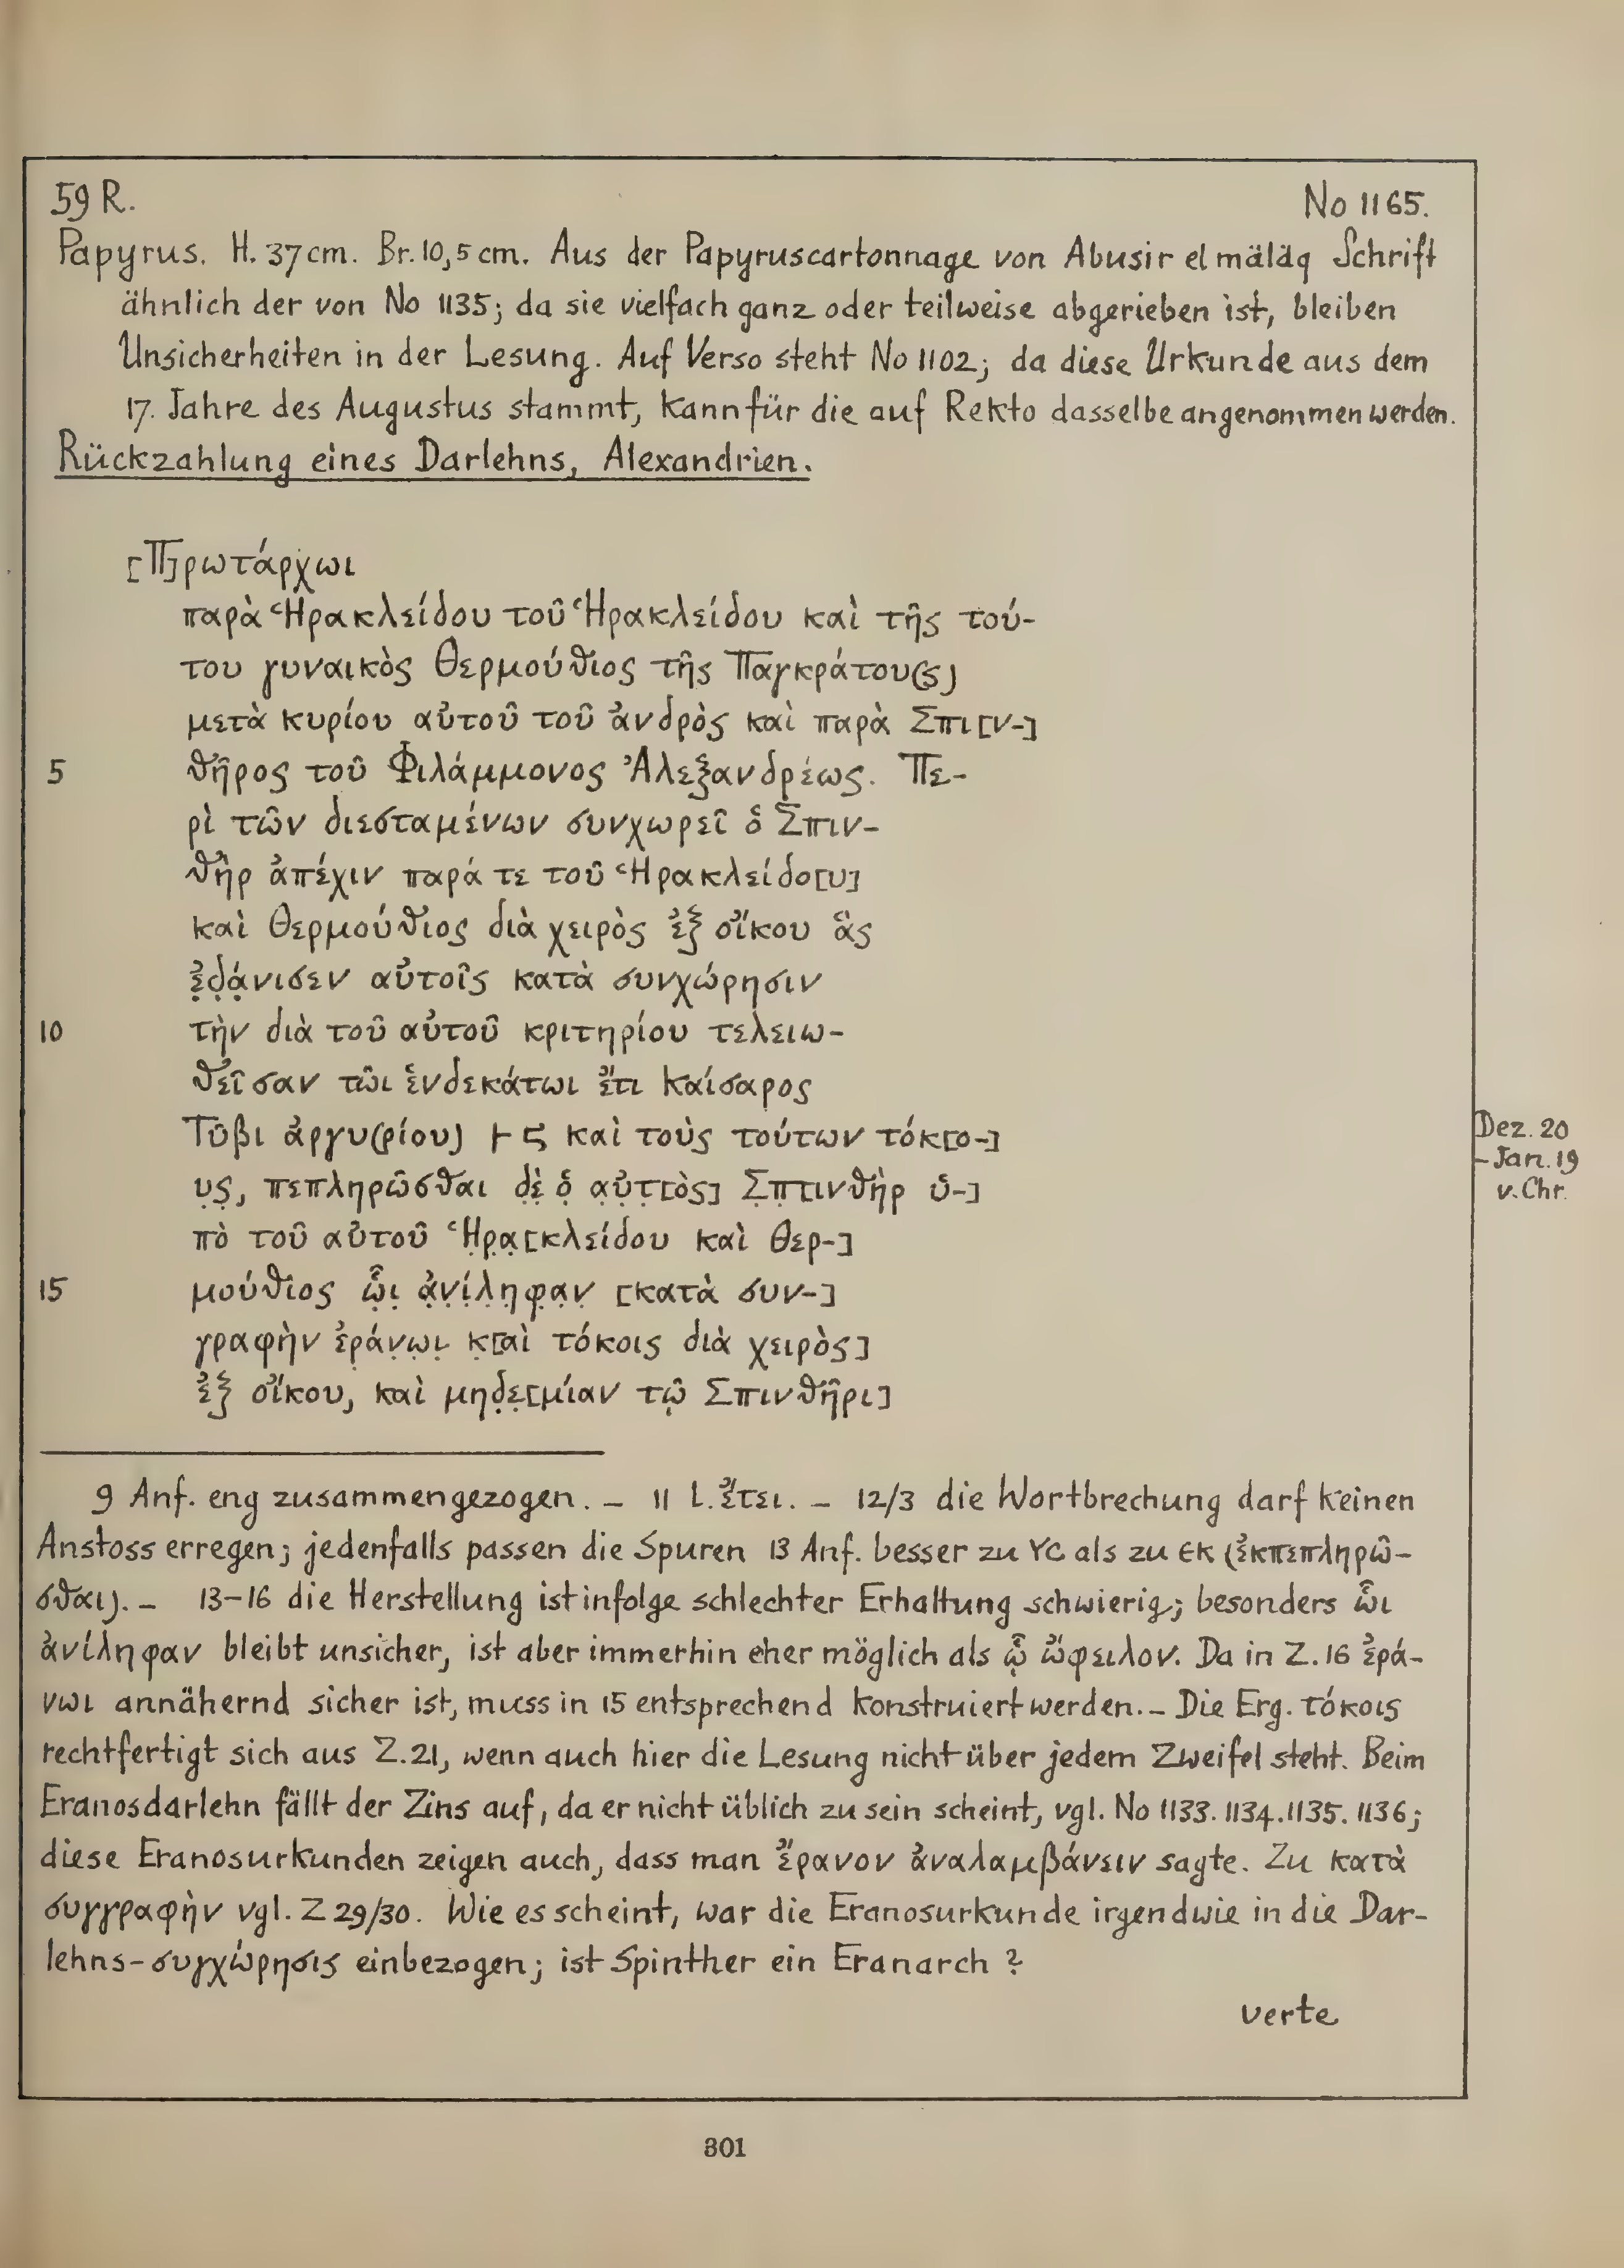 59 R.
No 1165.
Papyrus. H. 37 cm. Br. 10,5 cm. Aus der Papyruscartonnage von Abusir el mäläq Schrift
ähnlich der von No 1135; da sie vielfach ganz oder teilweise abgerieben ist, bleiben
Unsicherheiten in der Lesung. Auf Verso steht No 1102; da diese Urkunde aus dem
17. Jahre des Augustus stammt, kann für die auf Rekto dasselbe angenommen werden.
Rückzahlung eines Darlehns, Alexandrien.
[Π]ρωτάρχωι
παρὰ Ἡρακλείδου τοῦ Ἡρακλείδου καὶ τῆς τού-
του γυναικὸς Θερμούθιος τῆς Παγκράτου(ς)
μετὰ κυρίου αὐτοῦ τοῦ ἀνδρὸς καὶ παρὰ Σπι[ν-]
5 θῆρος τοῦ Φιλάμμονος Ἀλεξανδρέως. Πε-
ρὶ τῶν διεσταμένων συνχωρεῖ ὁ Σπιν-
θὴρ ἀπέχιν παρά τε τοῦ Ἡρακλείδο[υ]
καὶ Θερμούθιος διὰ χειρὸς ἐξ οἴκου ἃς
ἐ̣δ̣ά̣νισεν αὐτοῖς κατὰ συνχώρησιν
10 τὴν διὰ τοῦ αὐτοῦ κριτηρίου τελειω-
θεῖσαν τῶι ἑνδεκάτωι ἔτι Καίσαρος
Τῦβι ἀργυ(ρίου) 𐅂 ϛ καὶ τοὺς τούτων τόκ[ο-]
Dez. 20
– Jan. 19
v. Chr.
υ̣ς̣, πεπληρῶσθαι δ̣ὲ̣ ὁ̣ α̣ὐ̣τ̣[ὸς] Σ̣π̣τινθὴρ ὑ[-]
πὸ τοῦ αὐτοῦ Ἡ̣ρ̣α̣[κλείδου καὶ Θερ-]
15 μούθιος ὧ̣ι̣ ἀ̣ν̣ί̣λ̣η̣φ̣α̣ν̣ [κατὰ συν-]
γραφὴν ἐ̣ρά̣ν̣ω̣ι̣ κ̣[αὶ τόκοις διὰ χειρὸς]
ἐξ οἴκου, καὶ μηδ̣ε̣[μίαν τῷ Σπινθῆρι]
9 Anf. eng zusammengezogen. – 11 l. ἔτει. – 12/3 die Wortbrechung darf keinen
Anstoss erregen; jedenfalls passen die Spuren 13 Anf. besser zu ΥϹ als zu ЄΚ (ἐκπεπληρῶ-
σθαι). – 13–16 die Herstellung ist infolge schlechter Erhaltung schwierig; besonders ὧι
ἀνίληφαν bleibt unsicher, ist aber immerhin eher möglich als ᾧ ὤφειλον. Da in Z. 16 ἐρά-
νωι annähernd sicher ist, muss in 15 entsprechend konstruiert werden. – Die Erg. τόκοις
rechtfertigt sich aus Z. 21, wenn auch hier die Lesung nicht über jedem Zweifel steht. Beim
Eranosdarlehn fällt der Zins auf, da er nicht üblich zu sein scheint, vgl. No 1133. 1134. 1135. 1136;
diese Eranosurkunden zeigen auch, dass man ἔρανον ἀναλαμβάνειν sagte. Zu κατὰ
συγγραφὴν vgl. Z 29/30. Wie es scheint, war die Eranosurkunde irgendwie in die Dar-
lehns-συγχώρησις einbezogen; ist Spinther ein Eranarch?
verte
301